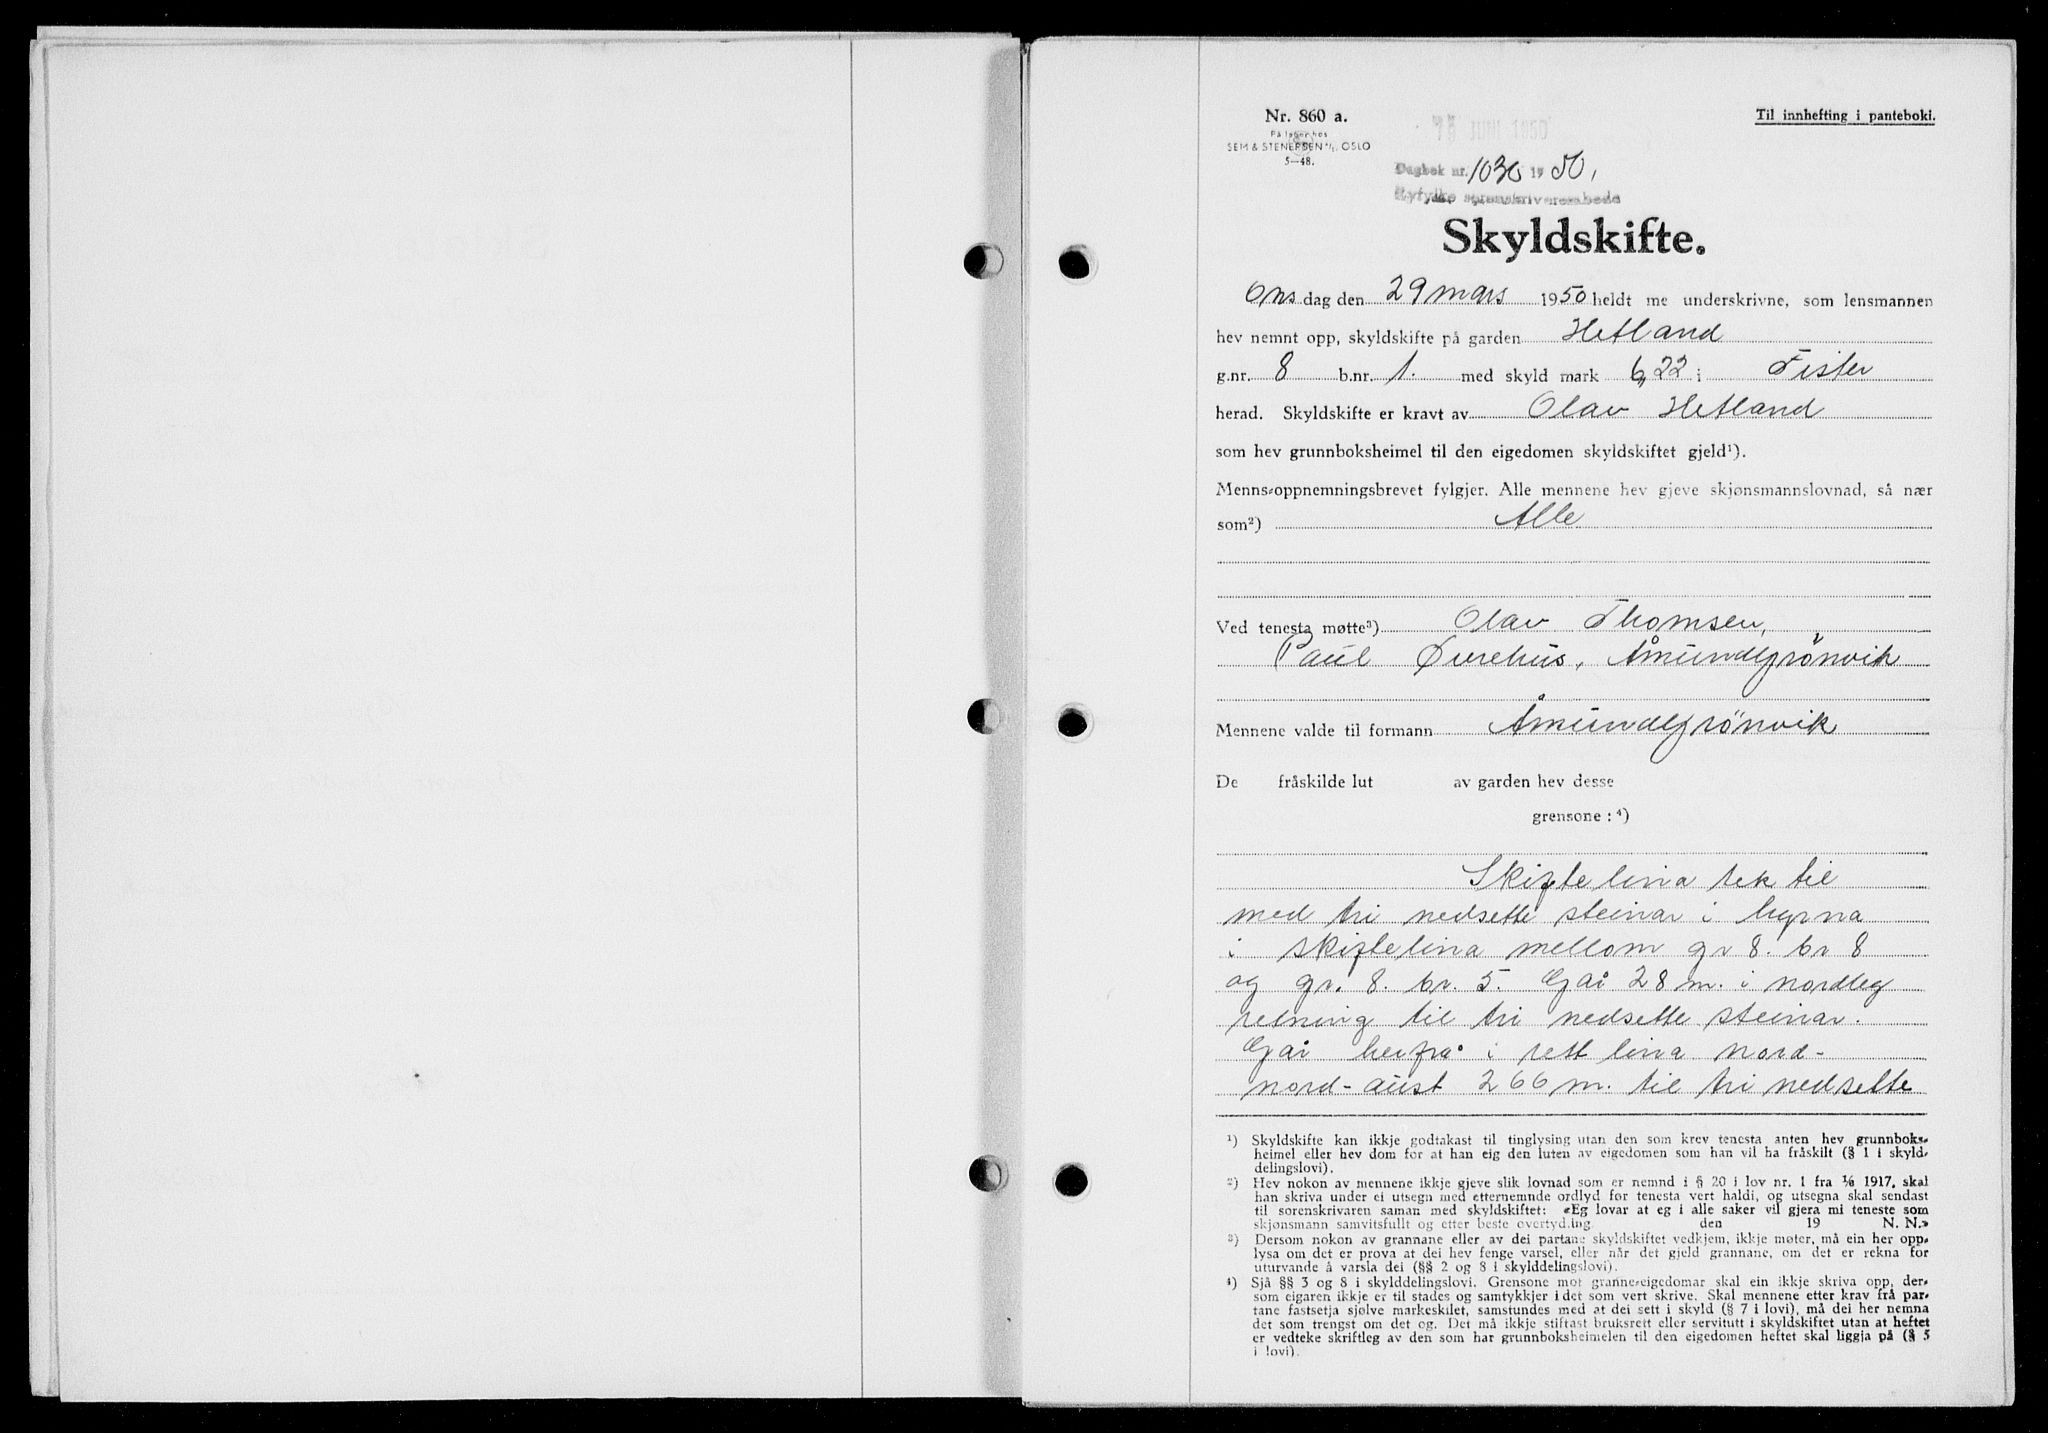 Nr. 860 a.
På lager hos
SEM & STENERSEN A/S, OSLO
5—48.
Til innhefting i panteboki.
JUNI 1950
Dagbok nr. 1030 1950,
Ryfylke sorenskriverembede
Skyldskifte.
Onsdag den 29 mars 1950 heldt me underskrivne, som lensmannen
hev nemnt opp, skyldskifte på garden Hetland
g.nr. 8 b.nr. 1. med skyld mark 6,22 i Fister
herad. Skyldskifte er kravt av Olav Hetland
som hev grunnboksheimel til den eigedomen skyldskiftet gjeld¹).
Menns-oppnemningsbrevet fylgjer. Alle mennene hev gjeve skjønsmannslovnad, så nær
som²) Alle
Ved tenesta møtte³) Olav Thomsen,
Paul Øvrehus, Åmund Grönvik
Mennene valde til formann Åmund Grönvik
De fråskilde lut av garden hev desse
grensone : ⁴)
Skiftelina tek til
med tri nedsette steinar i hyrna
i skiftelina mellom gr 8. br 8
og gr. 8. br. 5. Går 28 m. i nordleg
retning til tri nedsette steinar.
Går herfrå i rett lina nord-
nord-aust 266 m. til tri nedsette
¹) Skyldskifte kan ikkje godtakast til tinglysing utan den som krev tenesta anten hev grunnboks-
heimel eller hev dom for at han eig den luten av eigedomen som han vil ha fråskilt (§ 1 i skyld-
delingslovi).
²) Hev nokon av mennene ikkje gjeve slik lovnad som er nemnd i § 20 i lov nr. 1 fra 1/6 1917, skal
han skriva under ei utsegn med etternemnde ordlyd før tenesta vert haldi, og utsegna skal sendast
til sorenskrivaren saman med skyldskiftet: «Eg lovar at eg i alle saker vil gjera mi teneste som
skjønsmann samvitsfullt og etter beste overtyding. den 19 N. N.»
³) Dersom nokon av grannane eller av dei partane skyldskiftet vedkjem, ikkje møter, må ein her opp-
lysa om det er prova at dei hev fenge varsel, eller når det gjeld grannane, om det er rekna for
uturvande å varsla dei (§§ 2 og 8 i skylddelingslovi).
⁴) Sjå §§ 3 og 8 i skylddelingslovi. Grensone mot granne-eigedomar skal ein ikkje skriva opp, der-
som eigaren ikkje er til stades og samtykkjer i det som vert skrive. Skal mennene etter krav frå par-
tane fastsetja sjølve markeskilet, samstundes med at dei sett i skyld (§ 7 i lovi), må dei her nemna
det som trengst om det og. Det må ikkje stiftast bruksrett eller servitutt i skyldskiftet utan at heftet
er vedteke skriftleg av den som har grunnboksheimelen til den eigedomen heftet skal liggja på (§ 5
i lovi).